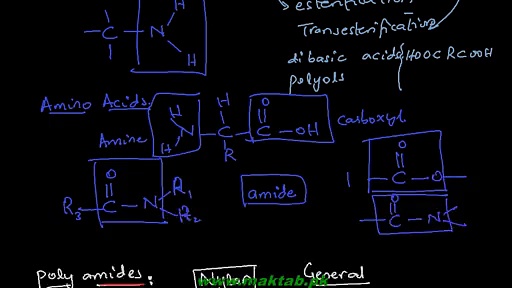 H
– C – N
H
esterification
Transesterification
dibasic acids HOOC R COOH
polyols
Amino Acids.
H
H
O
N – C – C – OH
H
R
Amine
Carboxyl
O
R3 – C – N
R1
R2
amide
O
– C – O –
O
– C – N
poly amides :
Nylon
General
www.maktab.pk